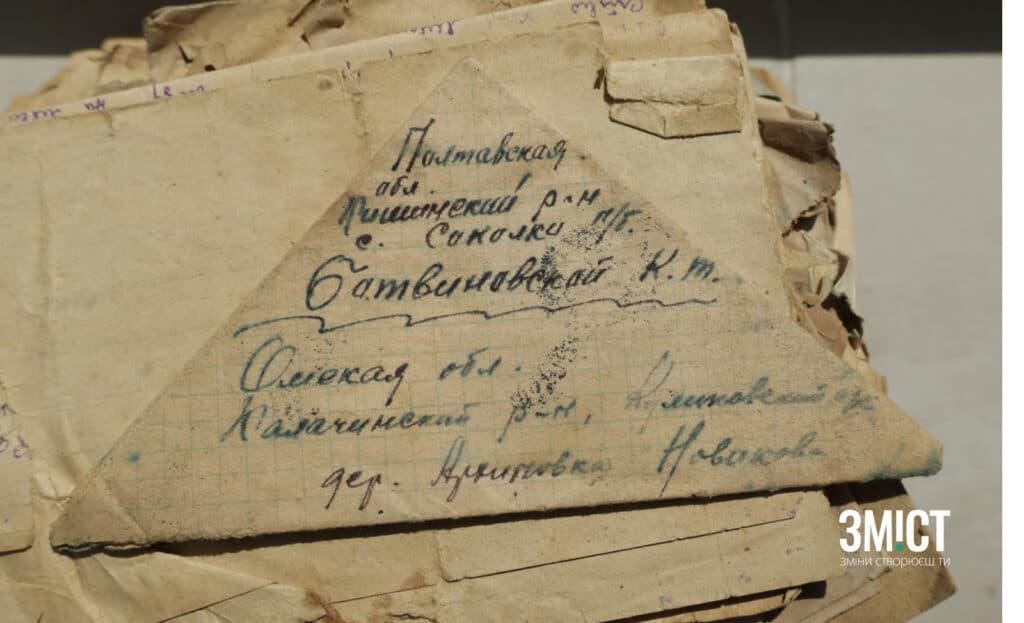 Полтавская
обл.
Кишинский р-н
с. Соколки п/г.
Батвиновской К. т.
Омская обл.
Калачинский р-н, Куликовский
дер. Архиповка Новакова
ЗМІСТ
ЗМІНИ СТВОРЮЄШ ТИ